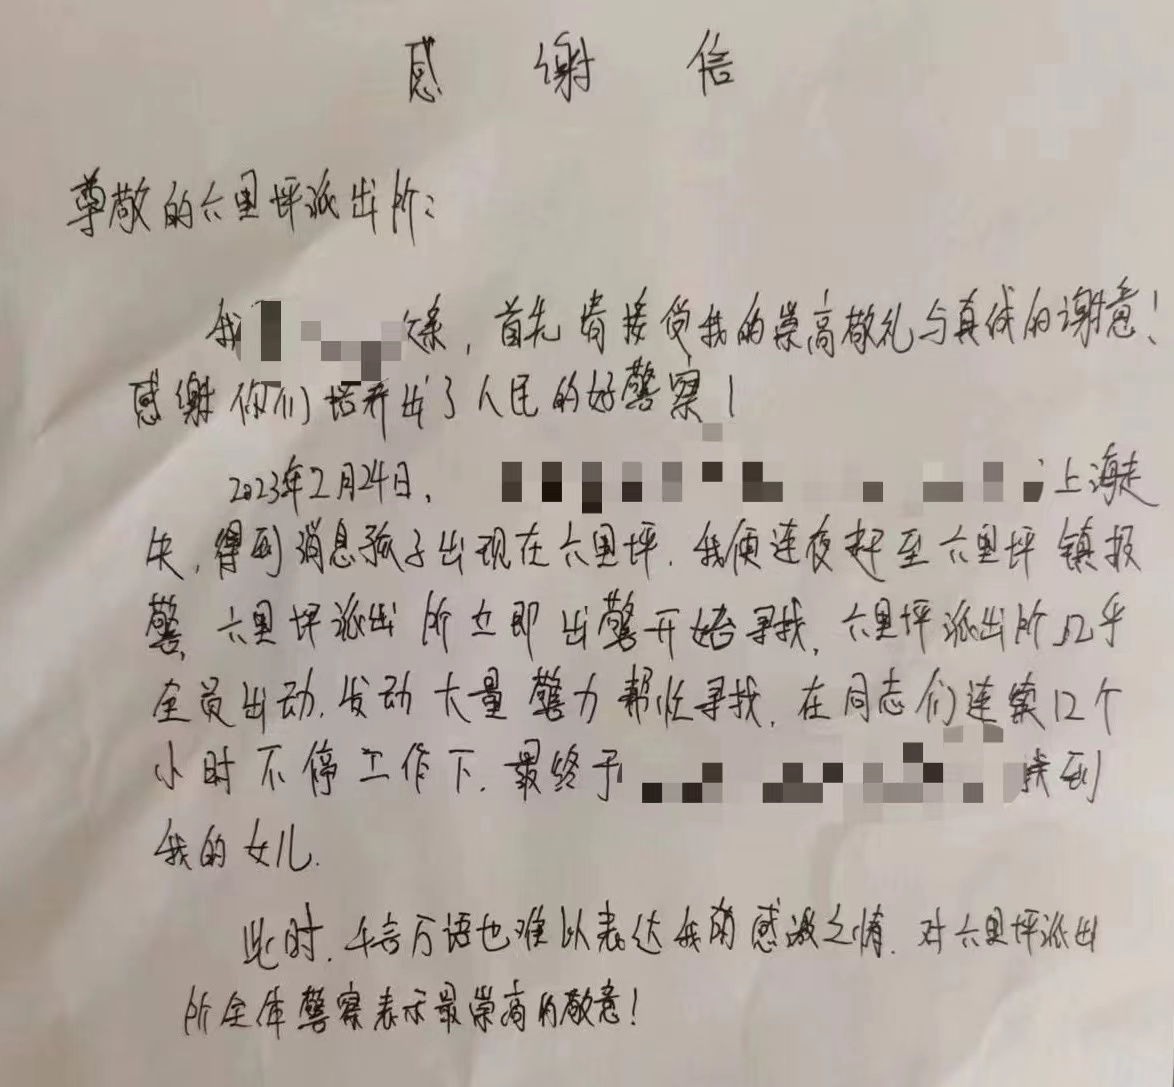 感谢信
尊敬的六里坪派出所：
我 亲，首先请接受我的崇高敬礼与真诚的谢意！
感谢你们培养出了人民的好警察！
2023年2月24日， 上海走
失，得到消息孩子出现在六里坪，我便连夜赶至六里坪镇报
警，六里坪派出所立即出警开始寻找，六里坪派出所几乎
全员出动，发动大量警力帮忙寻找，在同志们连续12个
小时不停工作下，最终于 找到
我的女儿.
此时，千言万语也难以表达我的感激之情，对六里坪派出
所全体警察表示最崇高的敬意！